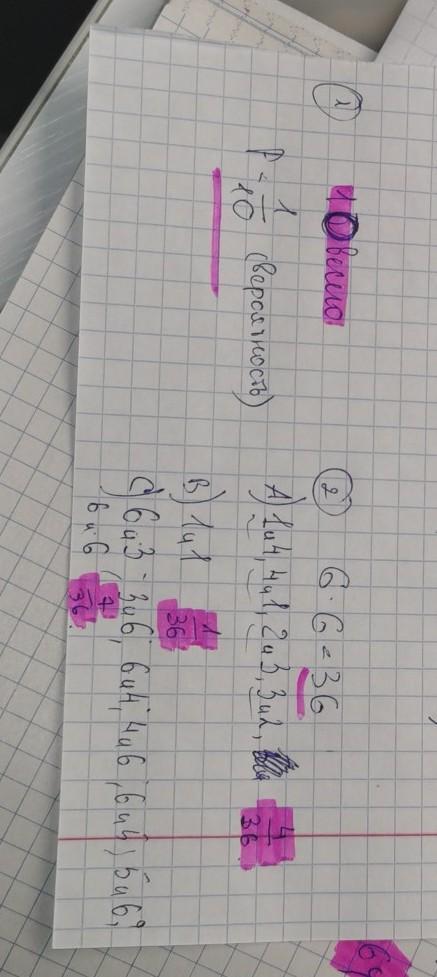 ①
P = 1/10 (вероятность)
②
6 · 6 = 36
A) 1и4, 4и1, 2и3, 3и2, 4/36
B) 1и1 1/36
C) 6и3; 3и6; 6и4; 4и6; 5и6;
6и6 7/36